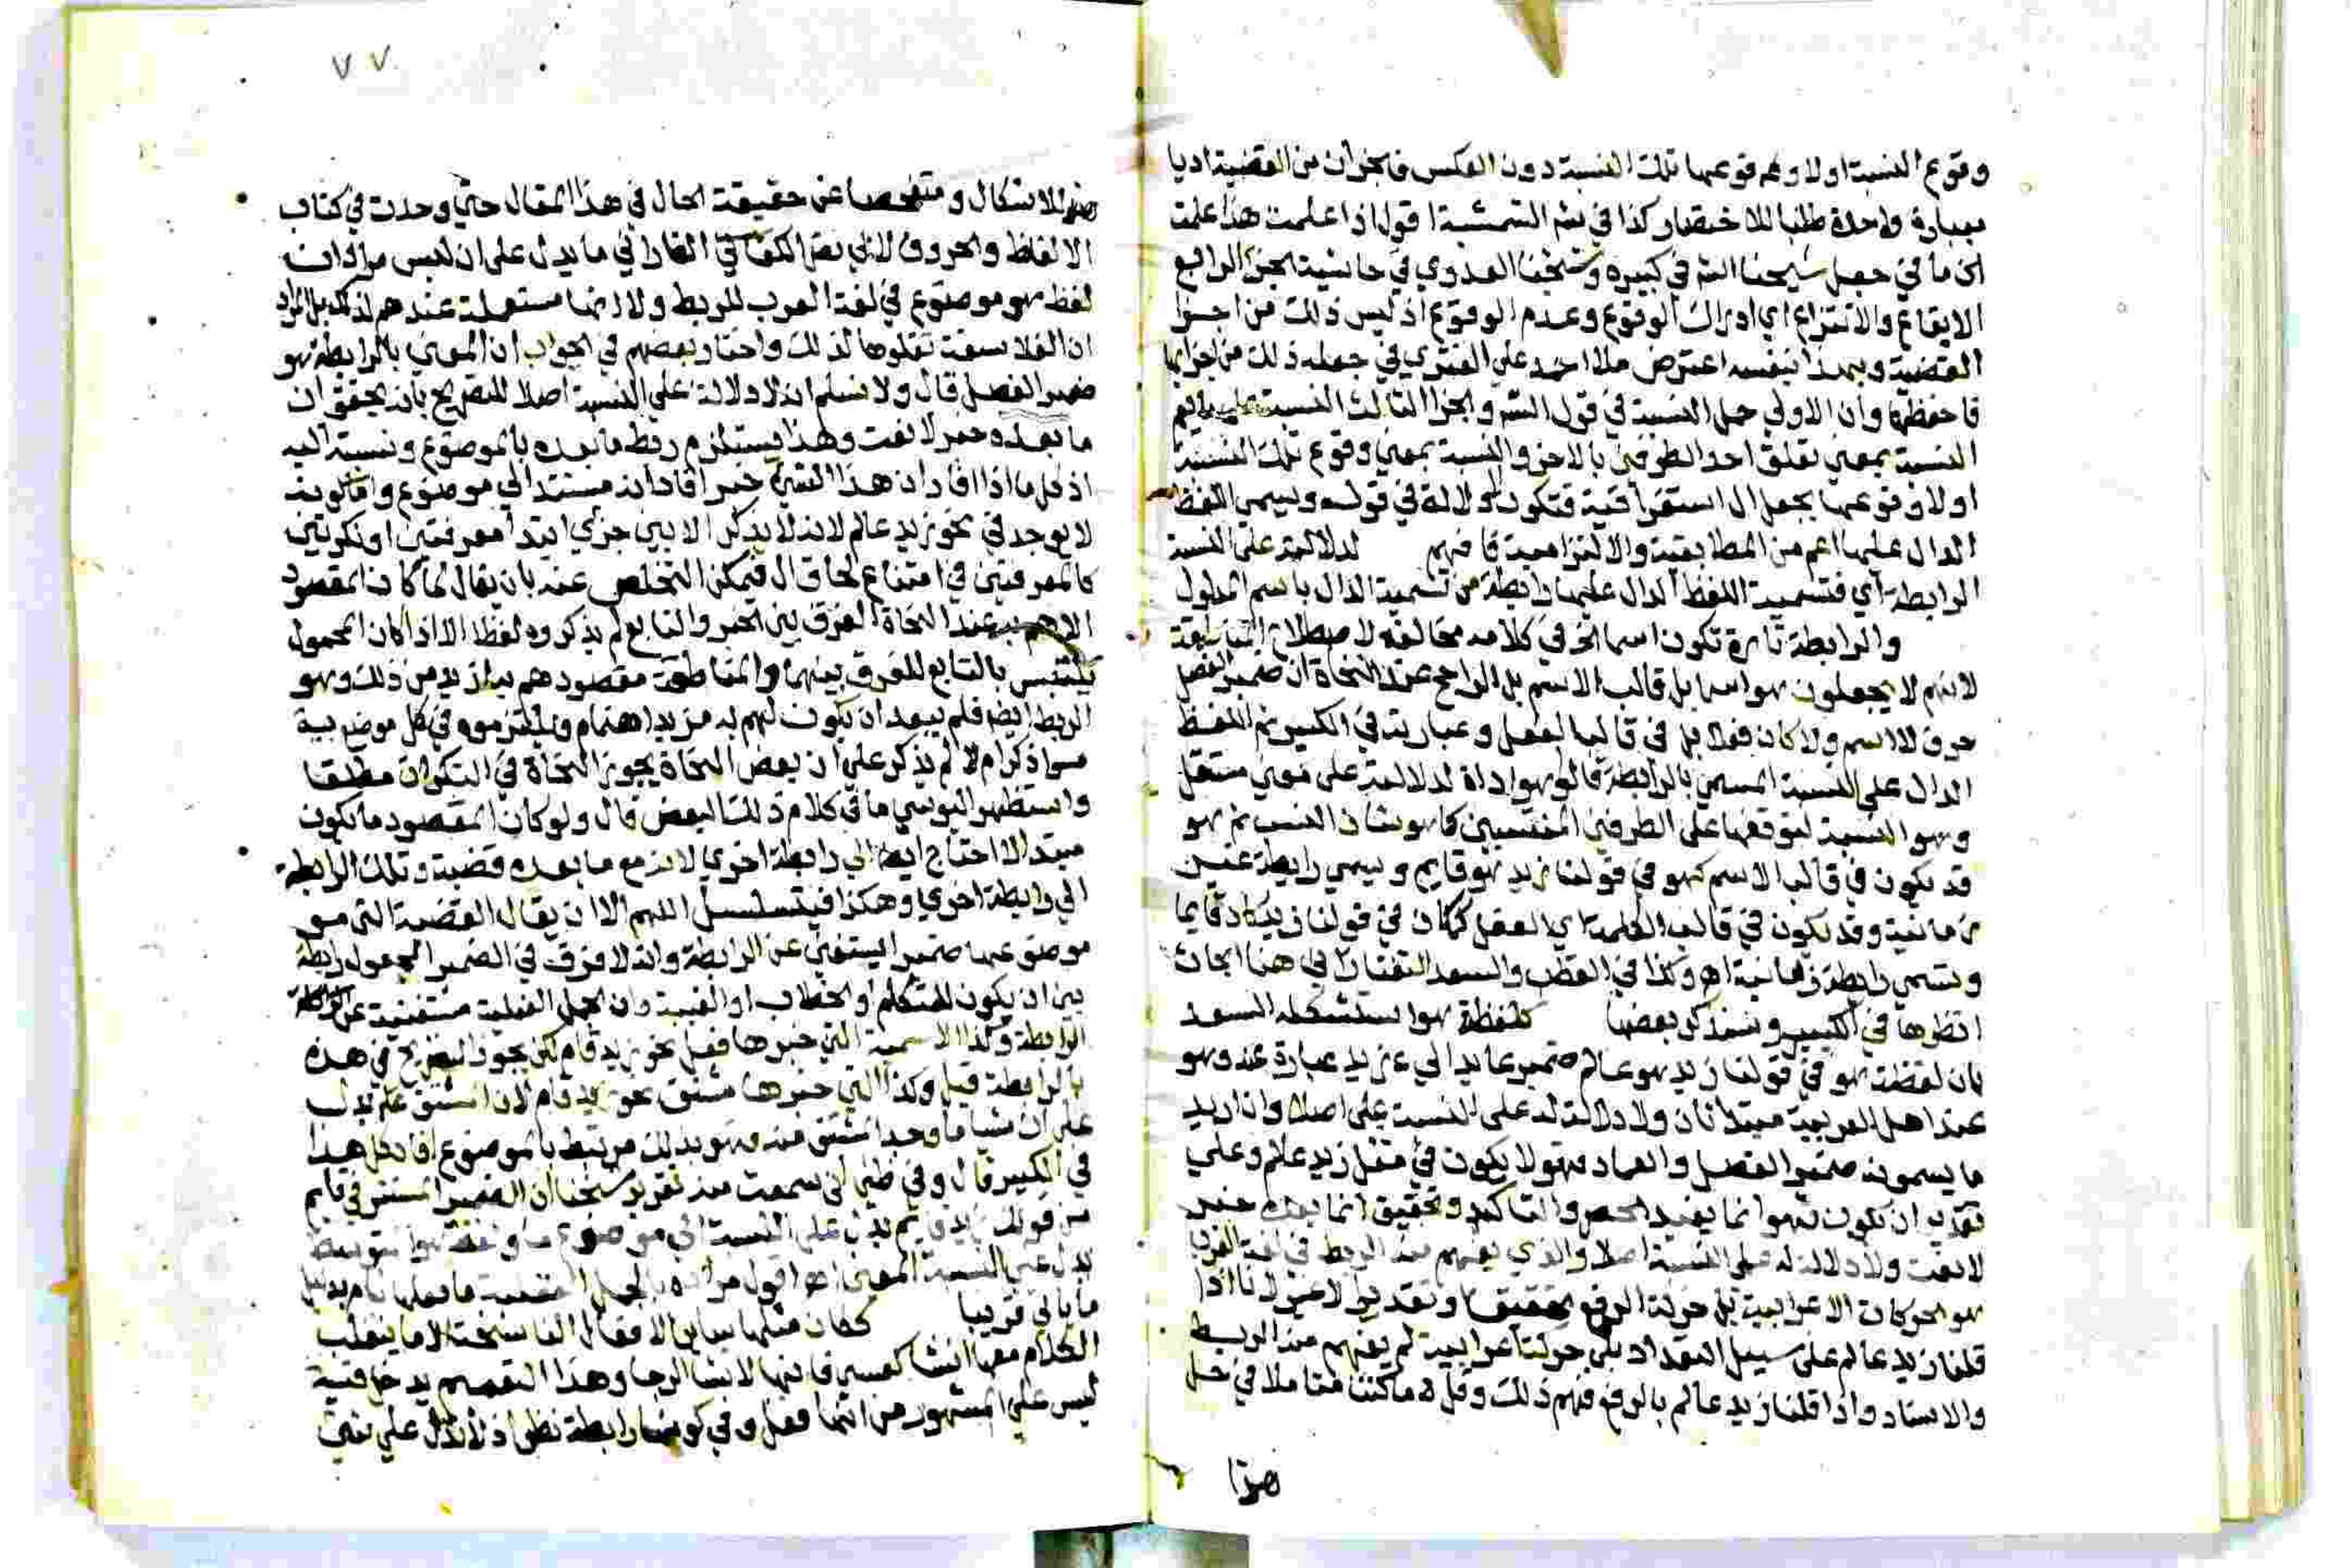 وقوع النسبة اولا وقوعها تلك النسبة دون العكس فالجزآن من القضية اديا
بعبارة واحدة طلبا للاختصار كذا في شر الشمسية اقول اذا علمت هذا علمت
ان ما في جعل شيخنا الش في كبيره وشيخنا العدوي في حاشيته الجزء الرابع
الايقاع والانتزاع اي ادراك الوقوع وعدم الوقوع اذ ليس ذلك من اجزا
القضية وبهذا بنفسه اعترض ملا احمد علي الفنري في جعله ذلك من اجزايها
فاحفظها وان الاولي حمل النسبة في قول الش والجزا الثالث النسبة علي مايعم
النسبة بمعني تعلق احد الطرفين بالاخر والنسبة بمعني وقوع تلك النسبة
اولا وقوعها بجعل ال استغراقية فتكون الدلالة في قوله ويسمي اللفظ
الدال عليها اعم من المطابقية والالتزامية فافهم لدلالته علي النسبة
الرابطة اي فتسمية اللفظ الدال عليها رابطة من تسمية الدال باسم المدلول
والرابطة تارة تكون اسما الخ في كلامه مخالفة لاصطلاح المناطقة
لانهم لا يجعلون هو اسما بل قالب الاسم بل الراجح عند النحاة ان ضمير الفصل
حرف لا اسم ولا كان فعلا بل في قالب الفعل وعبارته في الكبير ثم اللفظ
الدال علي النسبة المسمي بالرابطة قالوا هو اداة لدلالته علي معني مستقل
وهو النسبة لتوقفها علي الطرفين المنتسبين كما هو شان النسب ثم هو
قد يكون في قالب الاسم كهو في قولنا زيد هو قايم ويسمي رابطة غير
زمانية وقد يكون في قالب الكلمة اي الفعل ككان في قولنا زيد كان قايما
وتسمي رابطة زمانية اه وكذا في القطب والسعد التفتازاني هنا ابحاث
انظرها في الكبير وسنذكر بعضها كلفظة هو استشكله السعد
بان لفظة هو في قولنا زيد هو عالم ضمير عايد الي زيد عبارة عنه وهو
عند اهل العربية مبتدا ثان ولا دلالة له علي النسبة علي اصلا وان اريد
ما يسمونه ضمير الفصل والعماد فهو لا يكون في مثل زيد عالم وعلي
تقدير ان يكون فهو انما يفيد الحصر والتاكيد وتحقيق انما بعده خبر
لا نعت ولا دلالة له علي النسبة اصلا والذي يفهم منه الربط في لغة العرب
هو الحركات الاعرابية بل حركة الرفع تحقيقا او تقديرا لا غير لانا اذا
قلنا زيد عالم علي سبيل التعداد بلا حركة اعرابية لم يفهم منه الربط
والاسناد واذا قلنا زيد عالم بالرفع فهم ذلك وقل ما كنت متاملا في حل
هذا
٧٧
هذا الاشكال ومتفحصا عن حقيقة الحال في هذا المقال حتي وجدت في كتاب
الالفاظ والحروف لابي نصر الفارابي ما يدل علي ان ليس مرادان
لفظ هو موضوع في لغة العرب للربط ولا انها مستعملة عندهم لذلك بل المراد
ان الفلاسفة نقلوها لذلك واختار بعضهم في الجواب ان المعني بالرابطة هو
ضمير الفصل قال ولا نسلم انه لا دلالة علي النسبة اصلا للتصريح بانه يحقق ان
ما بعده خبر لا نعت وهذا يستلزم ربط ما بعده بالموضوع ونسبته اليه
اذ كل ما اذا افاد ان هذا الشي خبر افاد انه مستند الي موضوع واما كونه
لا يوجد في نحو زيد عالم لانه لا يذكر الا بين جزي ابتدا معرفتين او نكرتين
كالمعرفتين في امتناع لحاق ال فيمكن التخلص عنه بان يقال لما كان المقصود
الاهم عند النحاة الفرق بين الخبر والتابع لم يذكروه لفظا الا اذا كان المحمول
يلتبس بالتابع للفرق بينهما والمناطقة مقصودهم به ازيد من ذلك وهو
الربط ايضا فلم يبعد ان يكون لهم به مزيد اهتمام ويلتزموه في كل موضع بينه
سوا ذكر ام لا لم يذكر علي ان بعض النحاة يجوز النحاة في النكرات مطلقا
واستظهر اليوسي ما في كلام ذلك البعض قال ولو كان المقصود ما يكون
مبتدا لاحتاج ايضا الي رابطة اخري لانه مع ما بعده قضية وتلك الرابطة
الي رابطة اخري وهكذا فيتسلسل اللهم الا ان يقال القضية التي هو
موضوعها ضمير يستغني عن الرابطة وانه لا فرق في الضمير المجعول رابطة
بين ان يكون للمتكلم او الخطاب او الغيبة وان الجمل الفعلية مستغنية عن
الرابطة وكذا الاسمية التي خبرها فعل نحو زيد قام لكن يجوز التصريح في هذه
بالرابطة قيل وكذا التي خبرها مشتق نحو زيد قام لان المشتق علم يدل
علي ان شيا ما وجد المشتق منه فهو بذلك مرتبط بالموضوع افاد كل هذا
في الكبير قال وفي ظني اني سمعت من تقرير شيخنا ان الضمير المستتر في قايم
من قولك زيد قايم يدل علي النسبة الي موضوع ما ولفظ هو
يدل علي النسبة المعني اه اقول مراده بالجمل الفعلية
ما ياتي قريبا ككان مثلها ساير الافعال الناسخة الا ما ينقلب
الكلام معها انشا كعسي فانها لانشا الرجا وهذا التعميم يدخل فيه
ليس علي المشهور من انها فعل وفي كونها رابطة نظر اذ لا تدل علي نفي